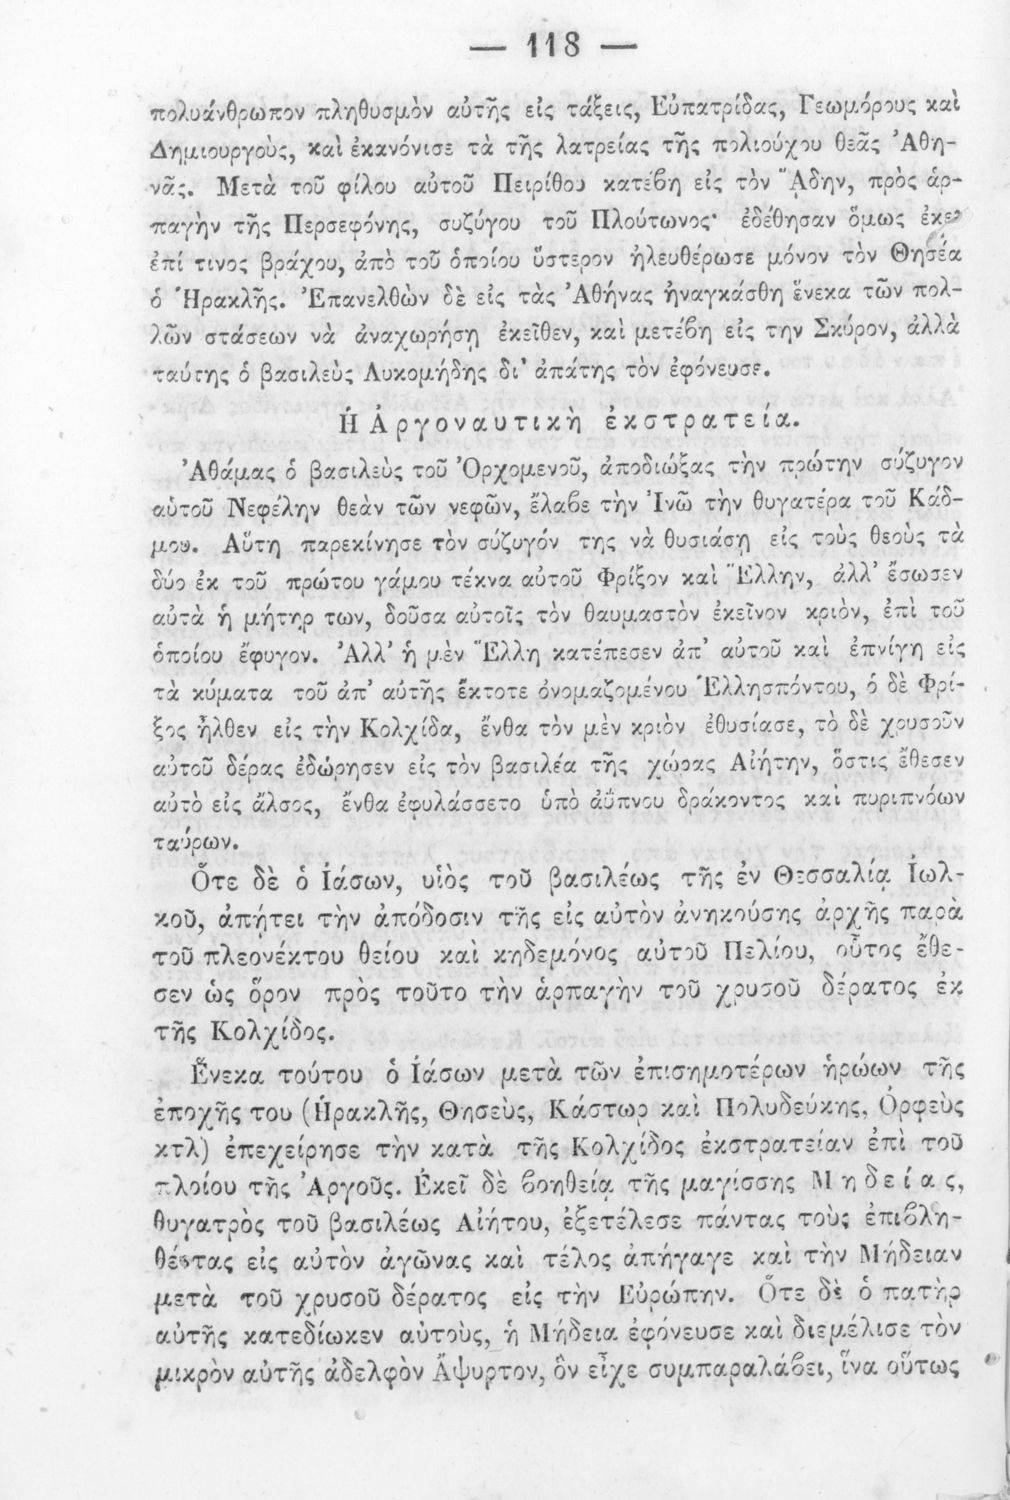 — 118 —
πολυάνθρωπον πληθυσμὸν αὐτῆς εἰς τάξεις, Εὐπατρίδας, Γεωμόρους καὶ
Δημιουργοὺς, καὶ ἐκανόνισε τὰ τῆς λατρείας τῆς πολιούχου θεᾶς Ἀθη-
νᾶς. Μετὰ τοῦ φίλου αὐτοῦ Πειρίθου κατέβη εἰς τὸν Ἅδην, πρὸς ἁρ-
παγὴν τῆς Περσεφόνης, συζύγου τοῦ Πλούτωνος· ἐδέθησαν ὅμως ἐκεῖ
ἐπί τινος βράχου, ἀπὸ τοῦ ὁποίου ὕστερον ἠλευθέρωσε μόνον τὸν Θησέα
ὁ Ἡρακλῆς. Ἐπανελθὼν δὲ εἰς τὰς Ἀθήνας ἠναγκάσθη ἕνεκα τῶν πολ-
λῶν στάσεων νὰ ἀναχωρήσῃ ἐκεῖθεν, καὶ μετέβη εἰς την Σκῦρον, ἀλλὰ
ταύτης ὁ βασιλεὺς Λυκομήδης δι' ἀπάτης τὸν ἐφόνευσε.
Ἡ Ἀργοναυτικὴ ἐκστρατεία.
Ἀθάμας ὁ βασιλεὺς τοῦ Ὀρχομενοῦ, ἀποδιώξας τὴν πρώτην σύζυγον
αὑτοῦ Νεφέλην θεὰν τῶν νεφῶν, ἔλαβε τὴν Ἰνὼ τὴν θυγατέρα τοῦ Κάδ-
μου. Αὕτη παρεκίνησε τὸν σύζυγόν της νὰ θυσιάσῃ εἰς τοὺς θεοὺς τὰ
δύο ἐκ τοῦ πρώτου γάμου τέκνα αὐτοῦ Φρίξον καὶ Ἕλλην, ἀλλ' ἔσωσεν
αὐτὰ ἡ μήτηρ των, δοῦσα αὐτοῖς τὸν θαυμαστὸν ἐκεῖνον κριὸν, ἐπὶ τοῦ
ὁποίου ἔφυγον. Ἀλλ' ἡ μὲν Ἕλλη κατέπεσεν ἀπ' αὐτοῦ καὶ ἐπνίγη εἰς
τὰ κύματα τοῦ ἀπ' αὐτῆς ἔκτοτε ὀνομαζομένου Ἑλλησπόντου, ὁ δὲ Φρί-
ξος ἦλθεν εἰς τὴν Κολχίδα, ἔνθα τὸν μὲν κριὸν ἐθυσίασε, τὸ δὲ χρυσοῦν
αὐτοῦ δέρας ἐδώρησεν εἰς τὸν βασιλέα τῆς χώρας Αἰήτην, ὅστις ἔθεσεν
αὐτὸ εἰς ἄλσος, ἔνθα ἐφυλάσσετο ὑπὸ ἀΰπνου δράκοντος καὶ πυριπνόων
ταύρων.
Ὅτε δὲ ὁ Ἰάσων, υἱὸς τοῦ βασιλέως τῆς ἐν Θεσσαλίᾳ Ἰωλ-
κοῦ, ἀπῄτει τὴν ἀπόδοσιν τῆς εἰς αὐτὸν ἀνηκούσης ἀρχῆς παρὰ
τοῦ πλεονέκτου θείου καὶ κηδεμόνος αὐτοῦ Πελίου, οὗτος ἔθε-
σεν ὡς ὅρον πρὸς τοῦτο τὴν ἁρπαγὴν τοῦ χρυσοῦ δέρατος ἐκ
τῆς Κολχίδος.
Ἕνεκα τούτου ὁ Ἰάσων μετὰ τῶν ἐπισημοτέρων ἡρώων τῆς
ἐποχῆς του (Ἡρακλῆς, Θησεὺς, Κάστωρ καὶ Πολυδεύκης, Ὀρφεὺς
κτλ) ἐπεχείρησε τὴν κατὰ τῆς Κολχίδος ἐκστρατείαν ἐπὶ τοῦ
πλοίου τῆς Ἀργοῦς. Ἐκεῖ δὲ βοηθείᾳ τῆς μαγίσσης Μηδείας,
θυγατρὸς τοῦ βασιλέως Αἰήτου, ἐξετέλεσε πάντας τοὺς ἐπιβλη-
θέντας εἰς αὐτὸν ἀγῶνας καὶ τέλος ἀπήγαγε καὶ τὴν Μήδειαν
μετὰ τοῦ χρυσοῦ δέρατος εἰς τὴν Εὐρώπην. Ὅτε δὲ ὁ πατὴρ
αὐτῆς κατεδίωκεν αὐτοὺς, ἡ Μήδεια ἐφόνευσε καὶ διεμέλισε τὸν
μικρὸν αὐτῆς ἀδελφὸν Ἄψυρτον, ὃν εἶχε συμπαραλάβει, ἵνα οὕτως